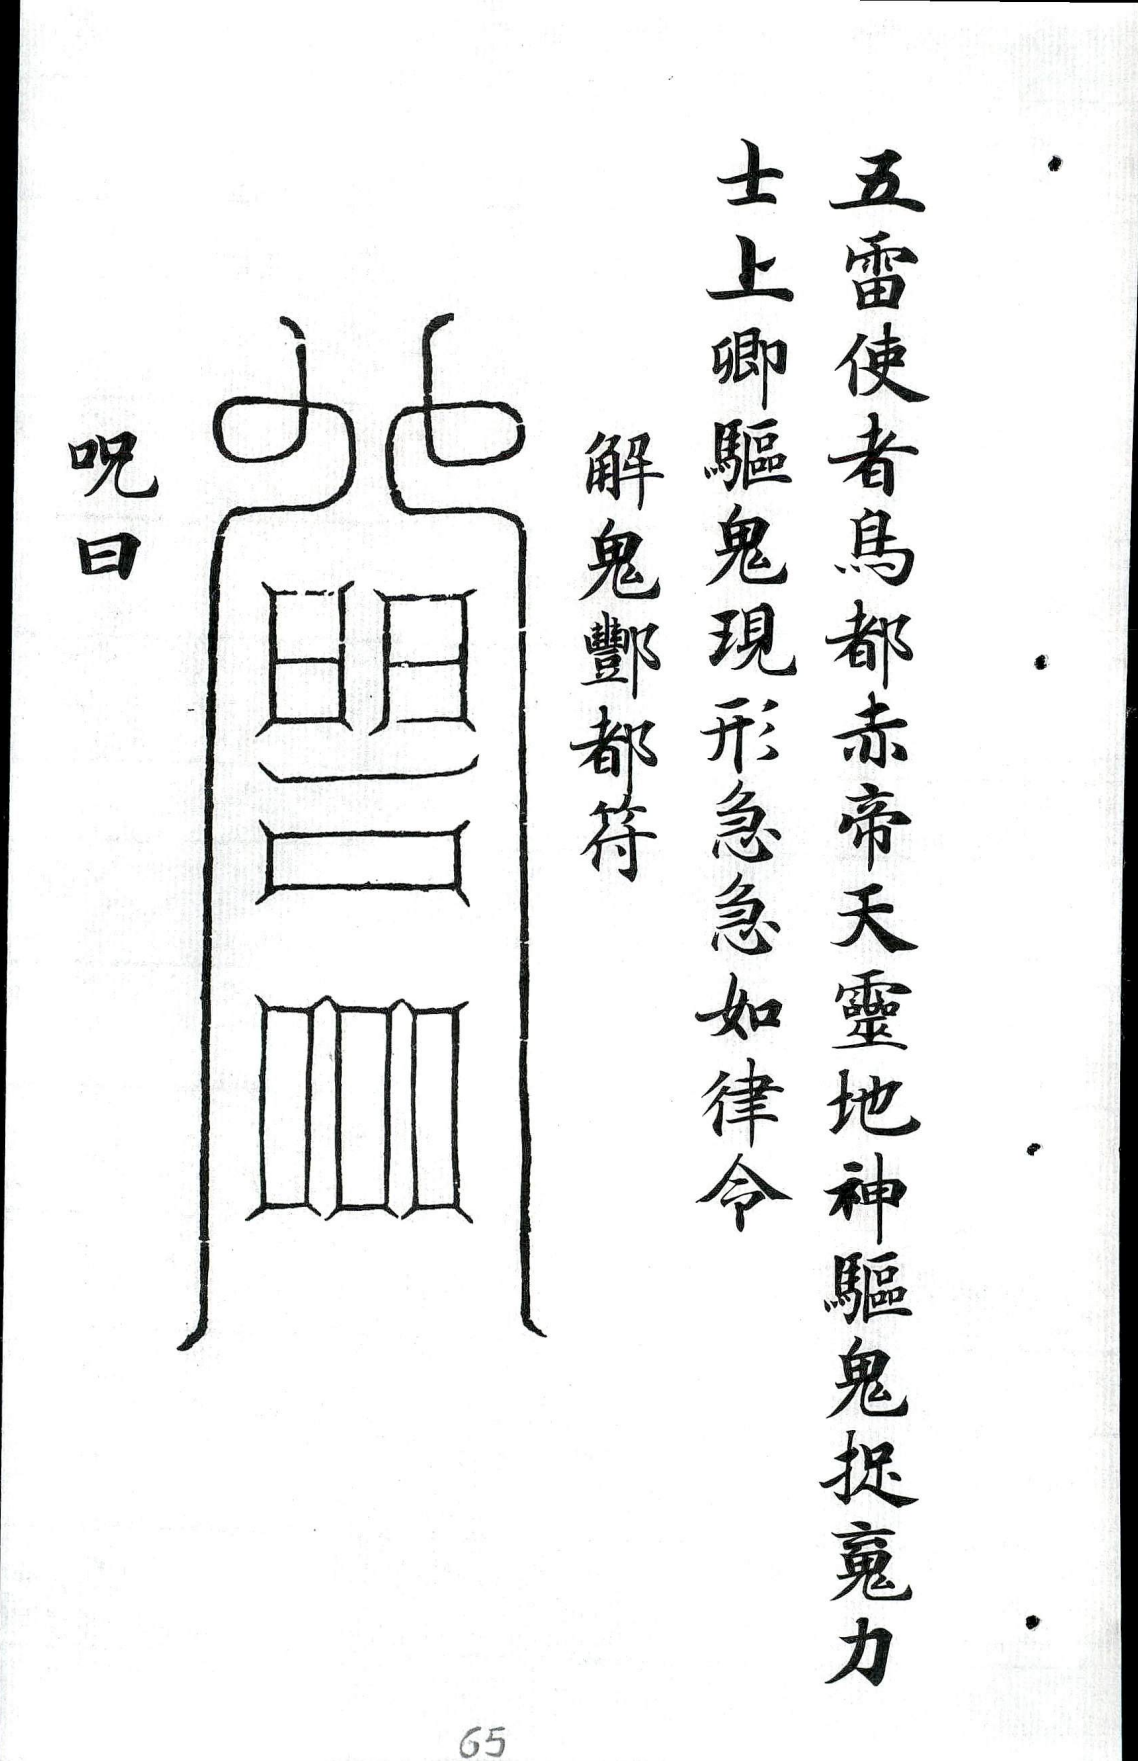 五雷使者烏都赤帝天靈地神驅鬼捉䰟力
士上卿驅鬼現形急急如律令
解鬼酆都符
呪曰
65